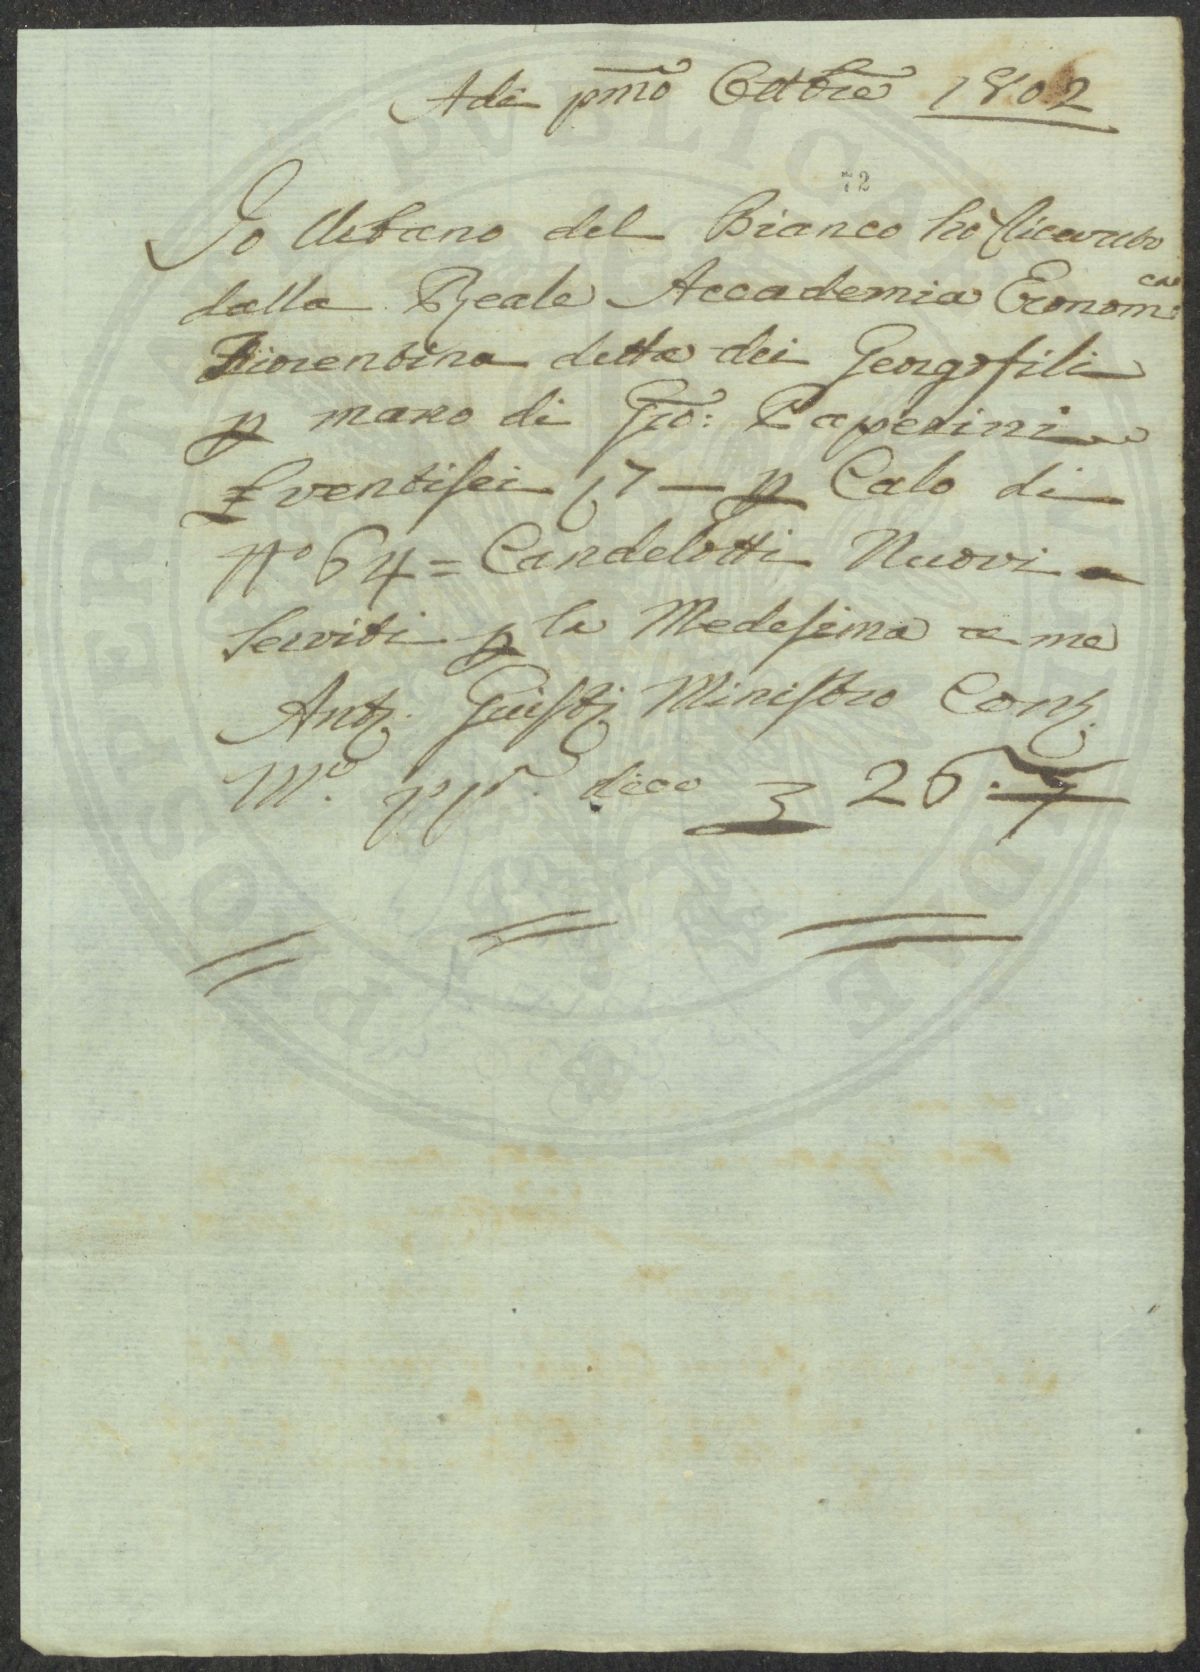 Adi pmo Ottbre 1802
72
Io Urbano del Bianco hò Ricevuto
dalla Reale Accademia Economca
Fiorentina detta dei Georgofili
p mano di Gio: Paperini
£ ventisei 7 — p Calo di
N° 64 = Candelotti Nuovi
Serviti p la Medesima a me
Anto. Giusti Ministro Con
Mo. pp. dico £ 26. 7
PROSPERITATI PUBLICAE